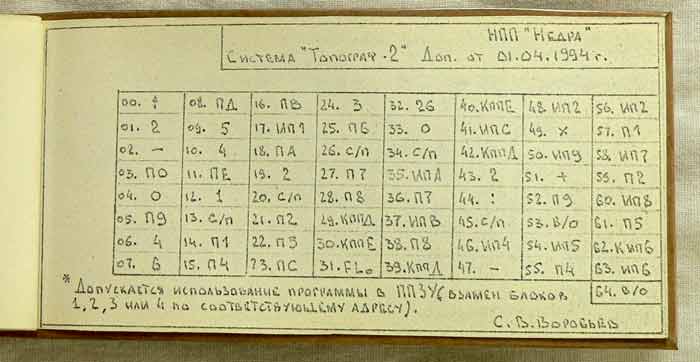 НПП "Недра"
Система "Топограф-2" Доп. от 01.04.1994 г.
00. ↑ 08. ПД 16. ПВ 24. 3 32. 26 40. КППЕ 48. ИП2 56. ИП2
01. 2 09. 5 17. ИП1 25. П6 33. 0 41. ИПС 49. × 57. П1
02. – 10. 4 18. ПА 26. С/П 34. С/П 42. КППД 50. ИП9 58. ИП7
03. ПО 11. ПЕ 19. 2 27. П7 35. ИПА 43. 2 51. + 59. П2
04. 0 12. 1 20. С/П 28. П8 36. П7 44. : 52. П9 60. ИП8
05. П9 13. С/П 21. П2 29. КППД 37. ИПВ 45. С/П 53. В/О 61. П5
06. 4 14. П1 22. П3 30. КППЕ 38. П8 46. ИП4 54. ИП5 62. КИП6
07. 6 15. П4 23. ПС 31. FL0 39. КППД 47. – 55. П4 63. ИП6
64. В/О
* Допускается использование программы в ППЗУ (взамен блоков
1, 2, 3 или 4 по соответствующему адресу).
С. В. Воробьев